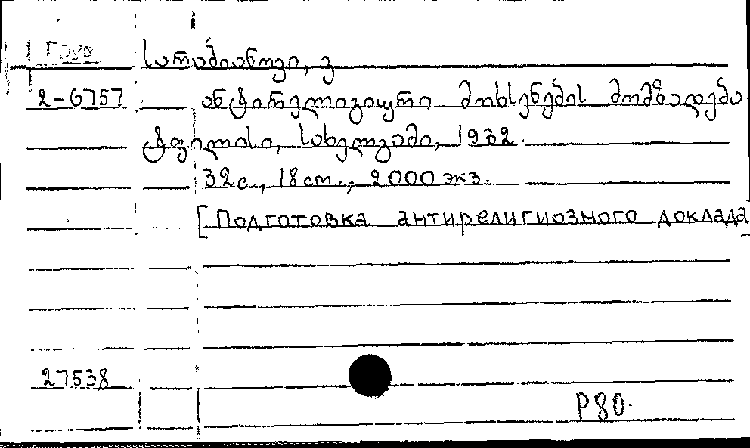 Груз
სარაბიანოვი, ვ
2-6757 ანტირელიგიური მოხსენების მომზადება
ტფილისი, სახელგამი, 1932.
32с., 18 cm., 2000 экз.
[Подготовка антирелигиозного доклада]
27538
P80.